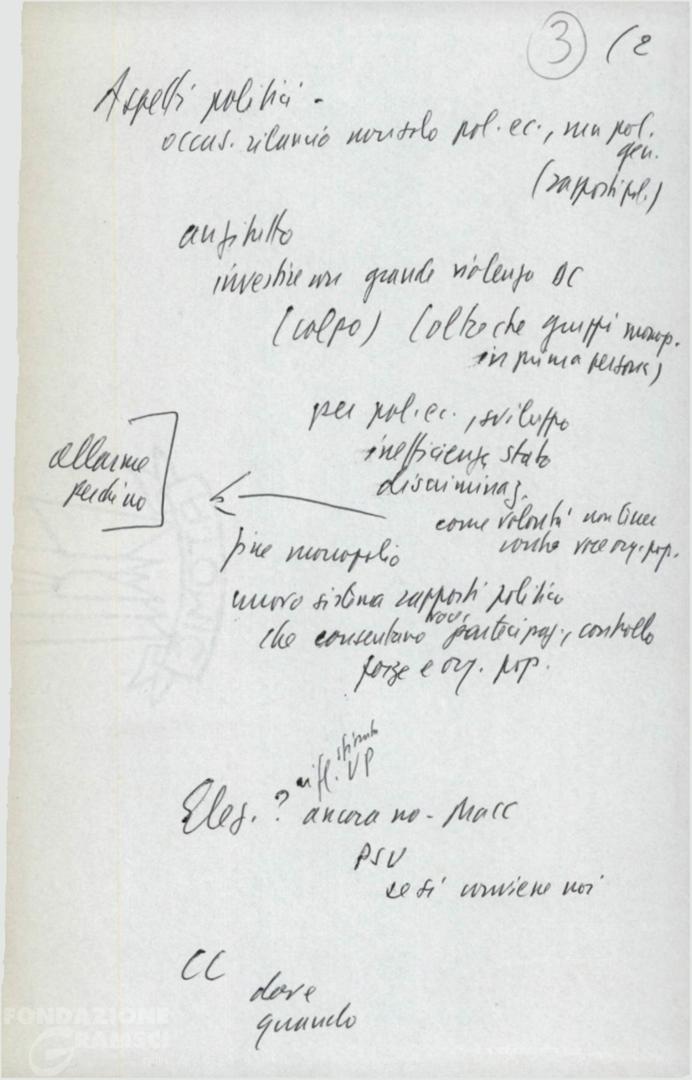 3 (2
Aspetti politici -
occas. rilancio non solo pol. ec., ma pol.
gen.
(rapporti pol.)
anzitutto
investire con grande violenza DC
(colpo) (oltre che gruppi monop.
in prima persona)
per pol. ec., sviluppo
inefficienza stato
discriminaz.
allarme
perdino
come volontà non tiene
conto voce org. pop.
fine monopolio
nuovo sistema rapporti politici
che consentano nuova partecipaz., controllo
forze e org. pop.
sfiducia
rifl. VP
Elez. ? ancora no - Macc
PSU
se sì conviene noi
CC
dove
quando
FONDAZIONE
GRAMSCI